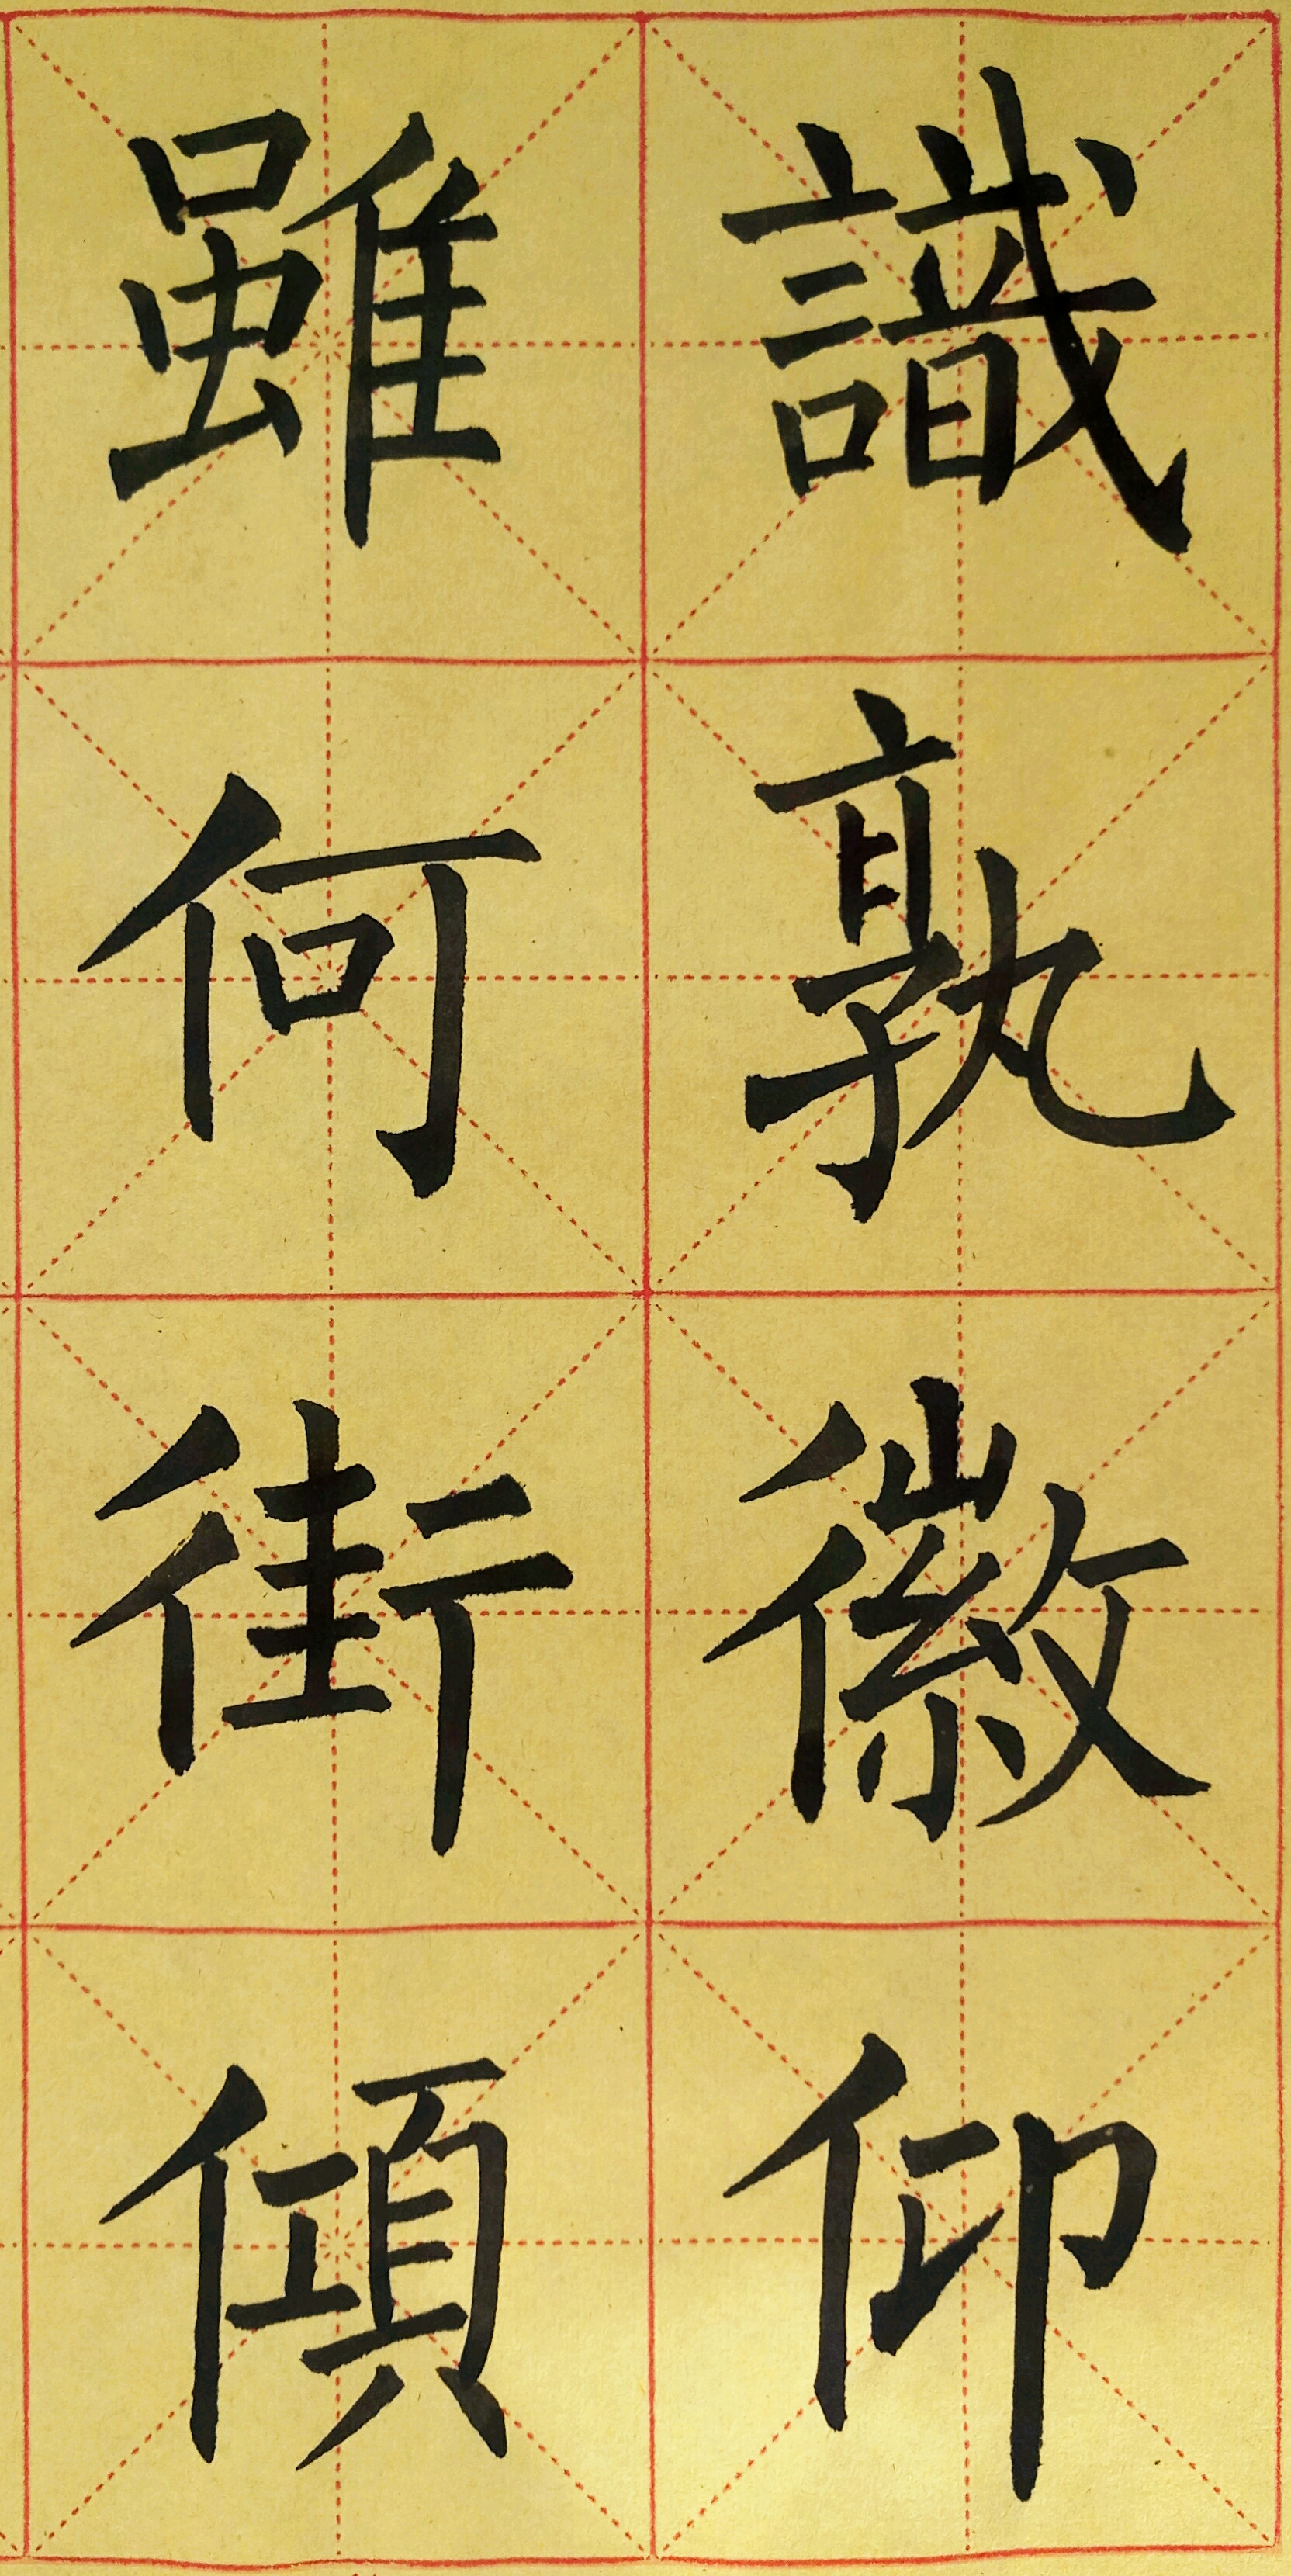 識孰徽仰
雖何街傾